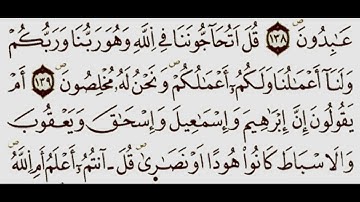 عَٰبِدُونَ ۝١٣٨ قُلَ اَتُحَآجُّونَنَا فِے اِ۬للَّهِ وَهُوَ رَبُّنَا وَرَبُّكُمْ
وَلَنَآ أَعْمَٰلُنَا وَلَكُمُۥٓ أَعْمَٰلُكُمْ وَنَحْنُ لَهُۥ مُخْلِصُونَ ۝١٣٩ أَمْ
يَقُولُونَ إِنَّ إِبْرَٰهِيمَ وَإِسْمَٰعِيلَ وَإِسْحَٰقَ وَيَعْقُوبَ
وَالَاسْبَاطَ كَانُواْ هُوداً اَوْ نَصَٰرَىٰ قُلَ ـ آنتُمُۥٓ أَعْلَمُ أَمِ اِ۬للَّهُ